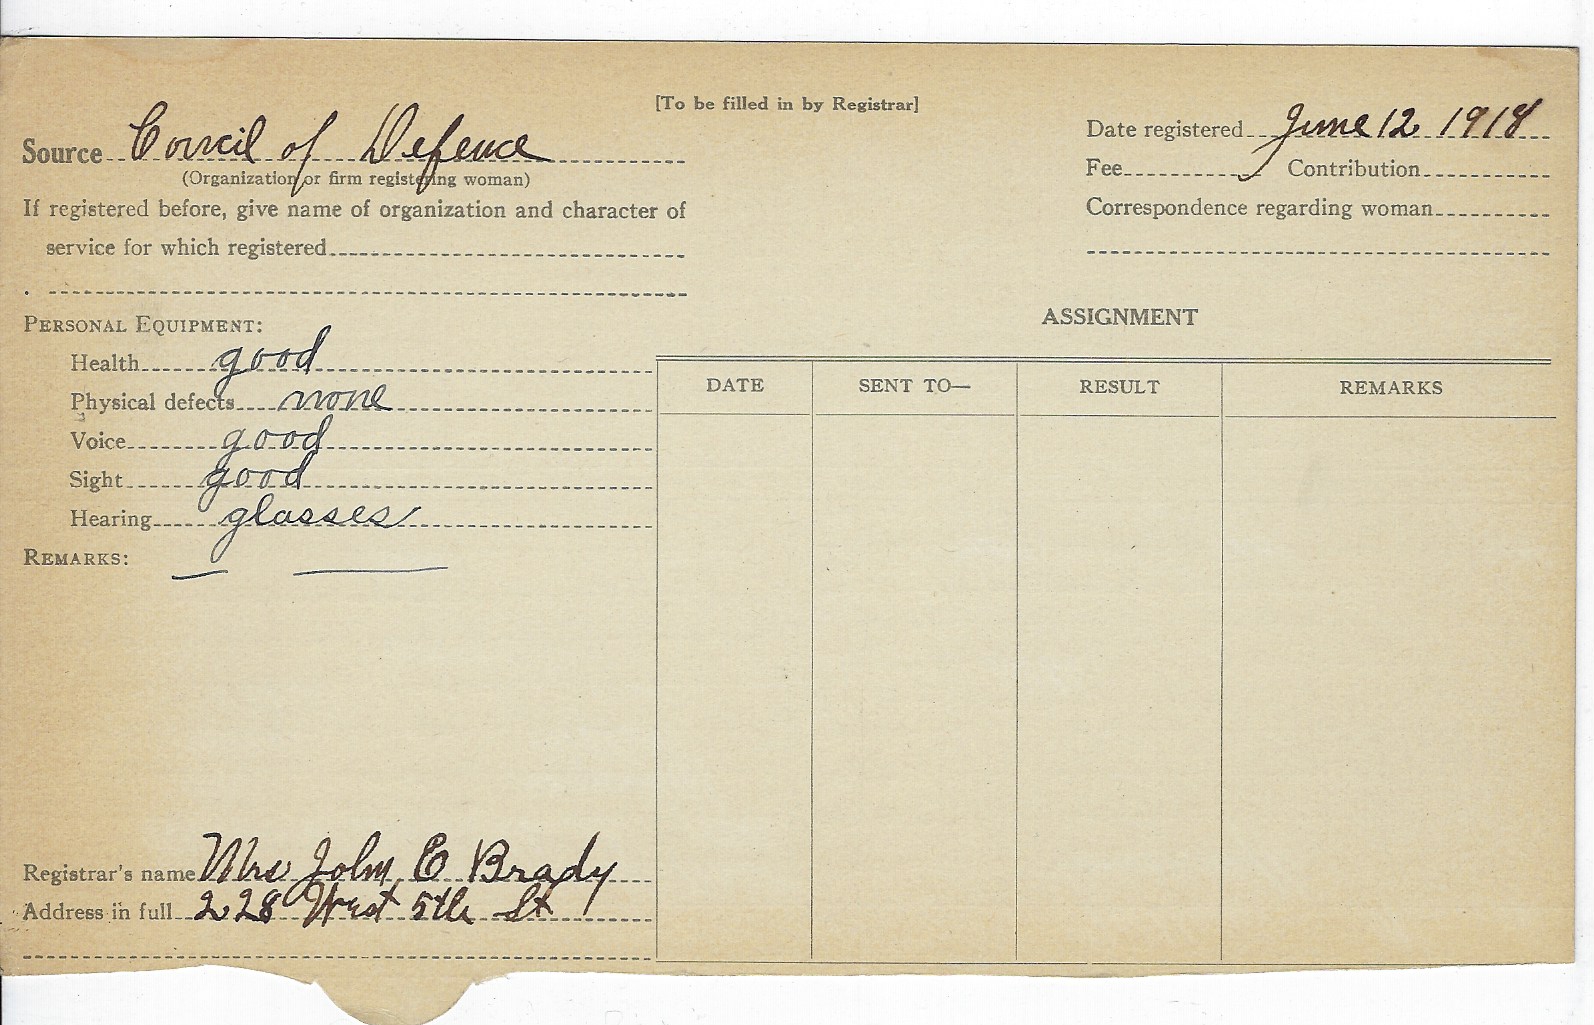 [To be filled in by Registrar]
Source Council of Defence
(Organization or firm registering woman)
If registered before, give name of organization and character of
service for which registered
PERSONAL EQUIPMENT:
Health good
Physical defects none
Voice good
Sight good
Hearing glasses
REMARKS:
Registrar's name Mrs John E Brady
Address in full 228 West 5th St
Date registered June 12 1918
Fee Contribution
Correspondence regarding woman
ASSIGNMENT
DATE SENT TO— RESULT REMARKS